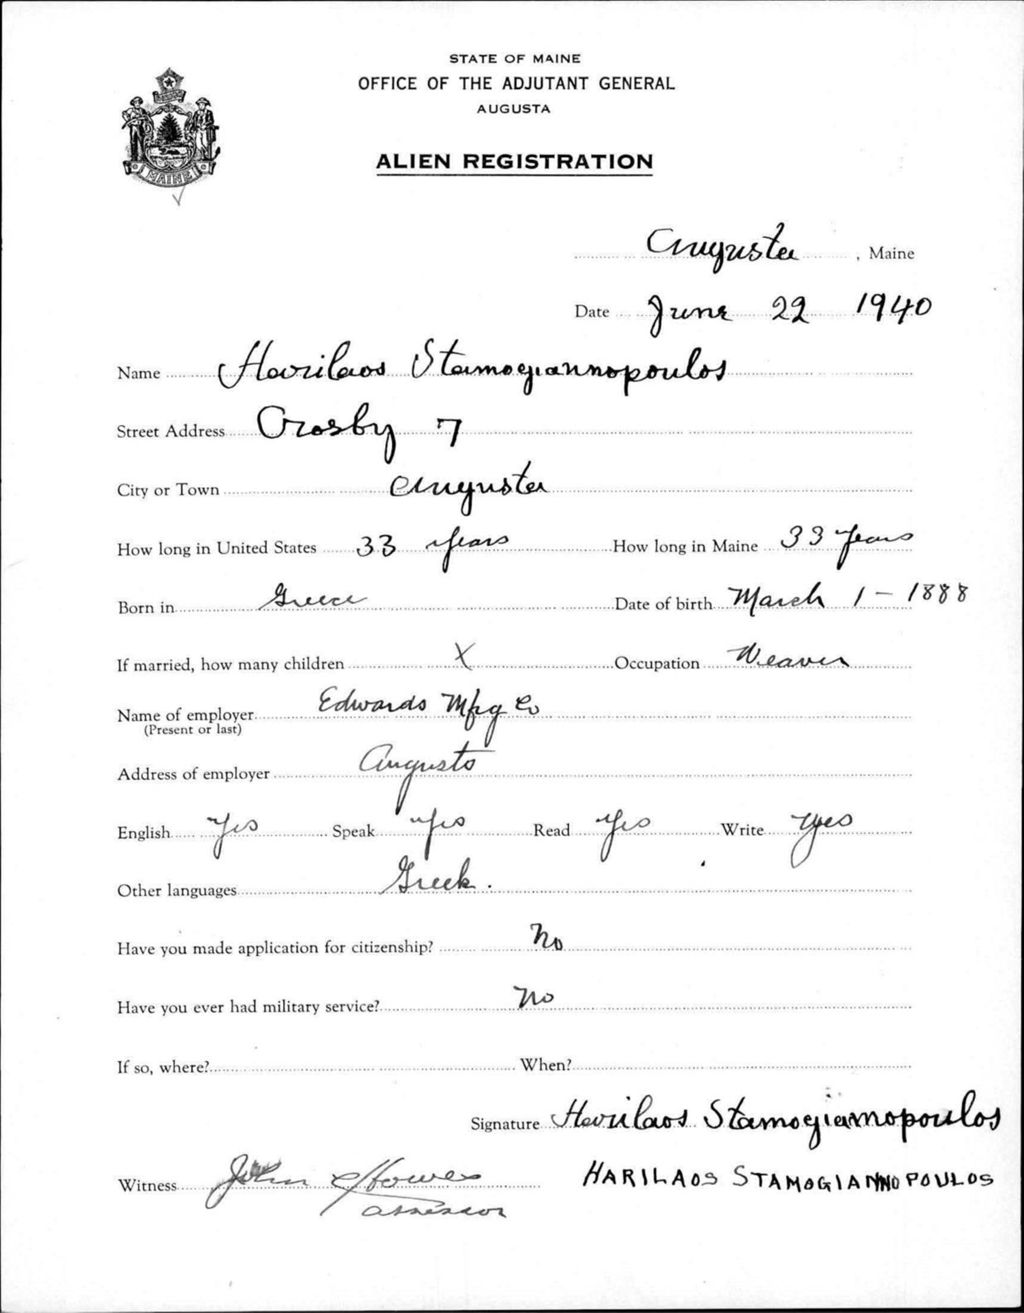 STATE OF MAINE
OFFICE OF THE ADJUTANT GENERAL
AUGUSTA
ALIEN REGISTRATION
MAINE
Augusta, Maine
Date June 22 1940
Name Harilaos Stamogiannopoulos
Street Address Crosby 7
City or Town Augusta
How long in United States 33 years How long in Maine 33 years
Born in Greece Date of birth March 1-1888
If married, how many children X Occupation Weaver
Name of employer Edwards Mfg Co
(Present or last)
Address of employer Augusta
English Yes Speak Yes Read Yes Write Yes
Other languages Greek.
Have you made application for citizenship? No
Have you ever had military service? No
If so, where? When?
Signature Harilaos Stamogiannopoulos
Witness John Howes HARILAOS STAMOGIANNOPOULOS
assessor